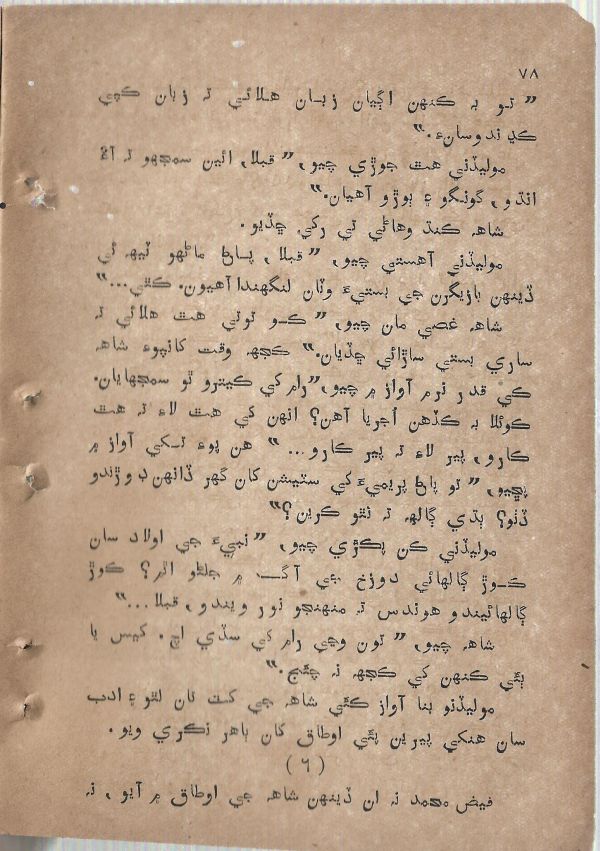 ٧٨
” تو ٻه ڪنهن اڳيان زبان هلائي ته زبان ڪپي
ڪڍندوسانءِ.“
موليڏني هٿ جوڙي چيو، ”قبلا، ائين سمجهو ته آءٌ
انڌو، گونگو ۽ ٻوڙو آهيان.“
شاهه ڪنڌ وهاڻي تي رکي ڇڏيو.
موليڏني آهستي چيو، ” قبلا، پاڻ ماڻهو ٽيهه ئي
ڏينهن بازيگرن جي بستيءَ وٽان لنگهندا آهيون. ڪٿي...“
شاهه غصي مان چيو، ” ڪو ٿوٿي هٿ هلائي ته
ساري بستي ساڙائي ڇڏيان.“ ڪجهه وقت کانپوءِ شاهه
ڪي قدر نرم آواز ۾ چيو، ”رام کي ڪيترو ٿو سمجهايان.
ڪوئلا به ڪڏهن اُجريا آهن؟ انهن کي هٿ لاءِ ته هٿ
ڪارو، پير لاءِ ته پير ڪارو... “ هن پوءِ تکي آواز ۾
پڇيو، ” تو پاڻ پريميءَ کي سٽيشن کان گهر ڏانهن ڊوڙندو
ڏٺو؟ ٻڌي ڳالهه ته نٿو ڪرين؟“
موليڏني ڪن پڪڙي چيو، ”نبيءَ جي اولاد سان
ڪوڙ ڳالهائي دوزخ جي آگ ۾ جلڻو اٿم؟ ڪوڙ
ڳالهائيندو هوندس ته منهنجو نور ويندو، قبلا...“
شاهه چيو، ” تون وڃي رام کي سڏي اچ. کيس يا
ٻئي ڪنهن کي ڪجهه نه چئج.“
موليڏنو بنا آواز ڪئي شاهه جي کٽ تان لٿو ۽ ادب
سان هنکي پيرين پئي اوطاق کان ٻاهر نڪري ويو.
( ٦ )
فيض محمد نه ان ڏينهن شاهه جي اوطاق ۾ آيو، نه